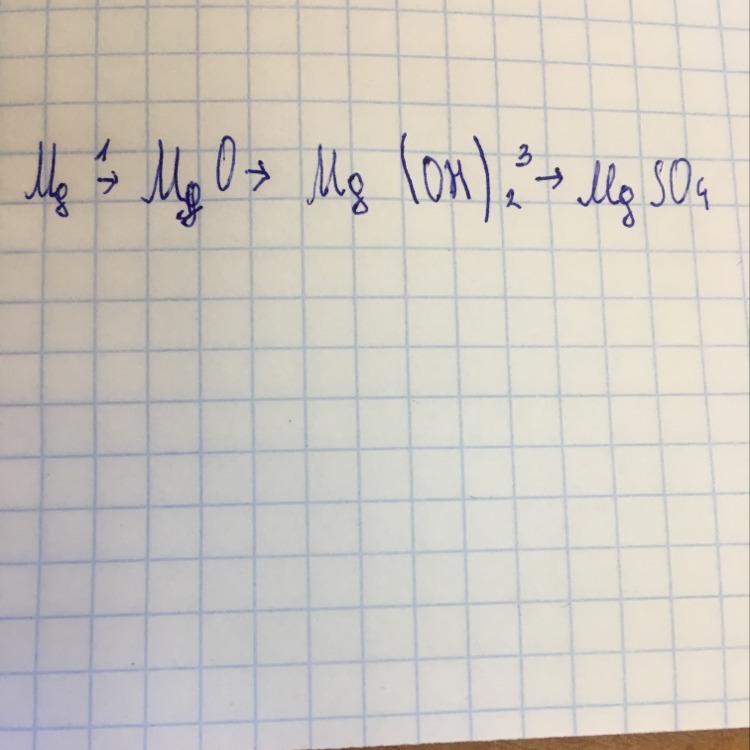 Mg →¹ MgO → Mg (OH)₂ →³ MgSO₄